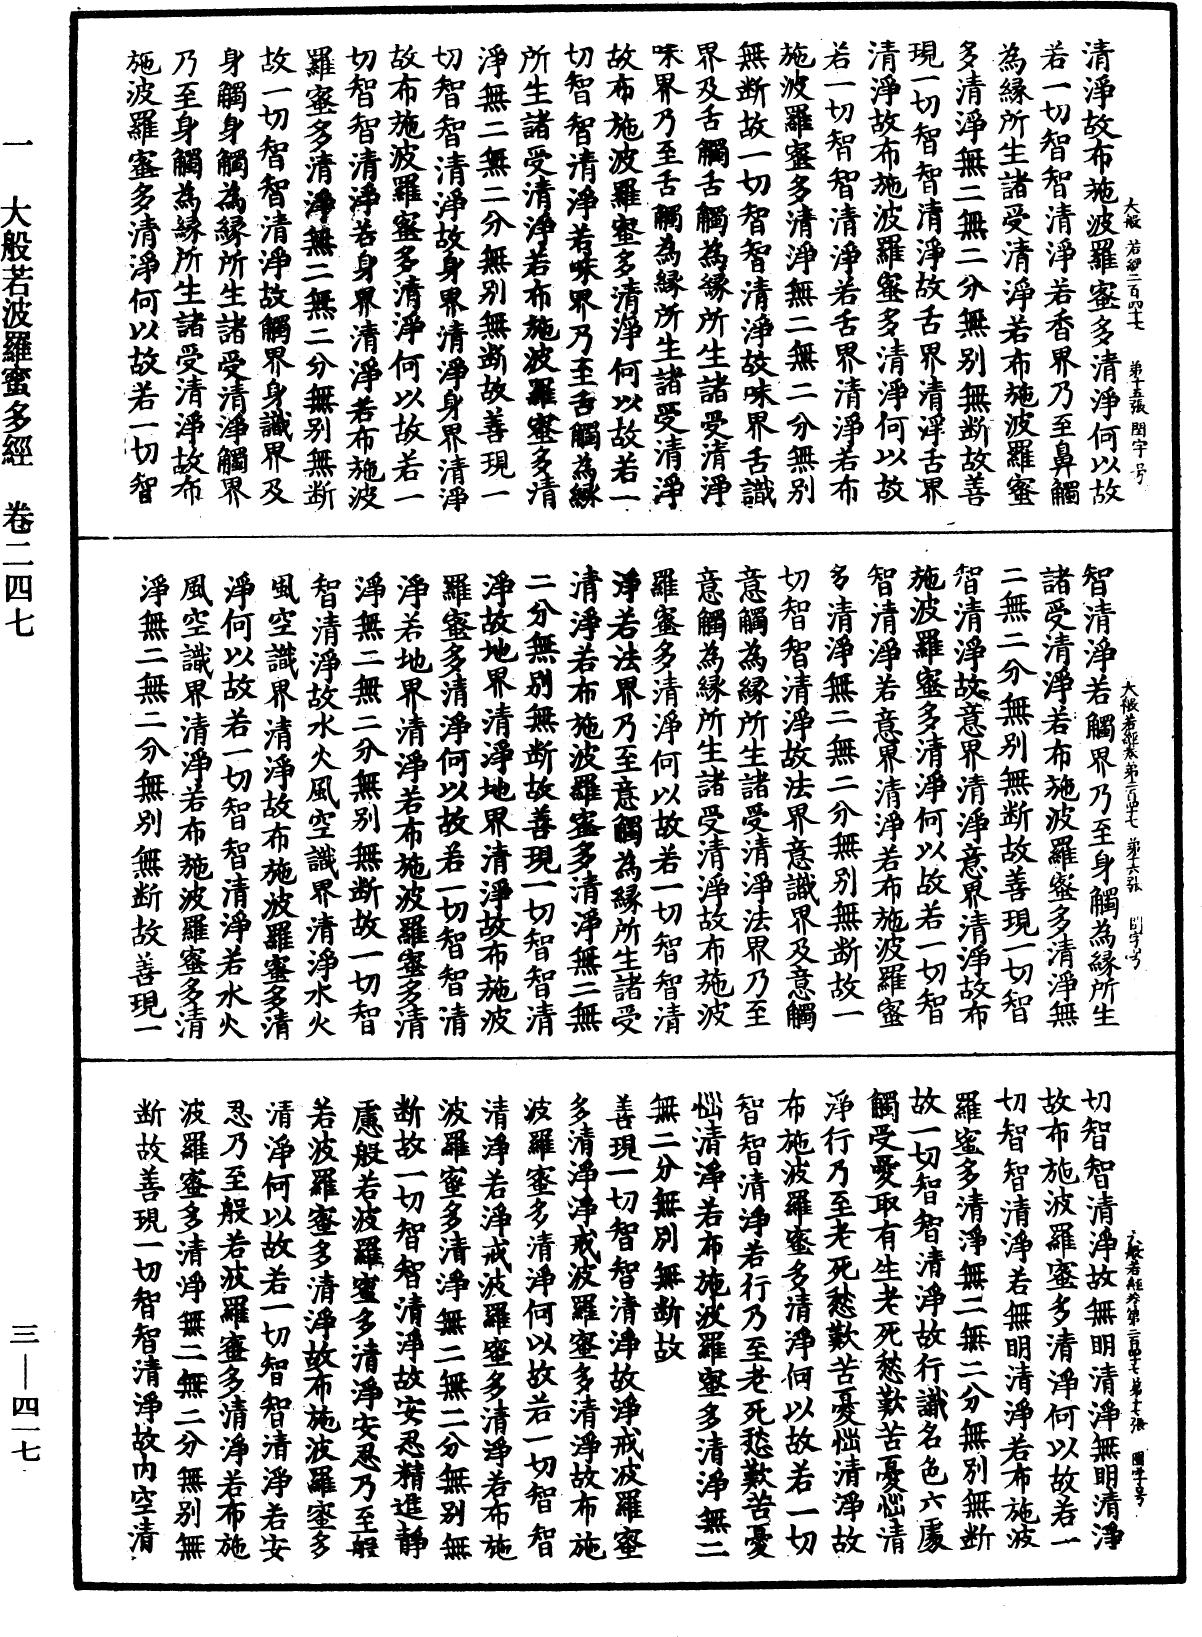 清淨故布施波羅蜜多清淨何以故
若一切智智清淨若香界乃至鼻觸
為緣所生諸受清淨若布施波羅蜜
多清淨無二無二分無別無断故善
現一切智智清淨故舌界清淨舌界
清淨故布施波羅蜜多清淨何以故
若一切智智清淨若舌界清淨若布
施波羅蜜多清淨無二無二分無別
無断故一切智智清淨故味界舌識
界及舌觸舌觸為緣所生諸受清淨
味界乃至舌觸為緣所生諸受清淨
故布施波羅蜜多清淨何以故若一
切智智清淨若味界乃至舌觸為緣
所生諸受清淨若布施波羅蜜多清
淨無二無二分無別無断故善現一
切智智清淨故身界清淨身界清淨
故布施波羅蜜多清淨何以故若一
切智智清淨若身界清淨若布施波
羅蜜多清淨無二無二分無別無断
故一切智智清淨故觸界身識界及
身觸身觸為緣所生諸受清淨觸界
乃至身觸為緣所生諸受清淨故布
施波羅蜜多清淨何以故若一切智
大般若經二百四十七 第十五張 閏字号
智清淨若觸界乃至身觸為緣所生
諸受清淨若布施波羅蜜多清淨無
二無二分無別無断故善現一切智
智清淨故意界清淨意界清淨故布
施波羅蜜多清淨何以故若一切智
智清淨若意界清淨若布施波羅蜜
多清淨無二無二分無別無断故一
切智智清淨故法界意識界及意觸
意觸為緣所生諸受清淨法界乃至
意觸為緣所生諸受清淨故布施波
羅蜜多清淨何以故若一切智智清
淨若法界乃至意觸為緣所生諸受
清淨若布施波羅蜜多清淨無二無
二分無別無断故善現一切智智清
淨故地界清淨地界清淨故布施波
羅蜜多清淨何以故若一切智智清
淨若地界清淨若布施波羅蜜多清
淨無二無二分無別無断故一切智
智清淨故水火風空識界清淨水火
風空識界清淨故布施波羅蜜多清
淨何以故若一切智智清淨若水火
風空識界清淨若布施波羅蜜多清
淨無二無二分無別無断故善現一
大般若經卷第二百四十七 第十六張 閏字号
切智智清淨故無明清淨無明清淨
故布施波羅蜜多清淨何以故若一
切智智清淨若無明清淨若布施波
羅蜜多清淨無二無二分無別無断
故一切智智清淨故行識名色六處
觸受愛取有生老死愁歎苦憂惱清
淨行乃至老死愁歎苦憂惱清淨故
布施波羅蜜多清淨何以故若一切
智智清淨若行乃至老死愁歎苦憂
惱清淨若布施波羅蜜多清淨無二
無二分無別無断故
善現一切智智清淨故淨戒波羅蜜
多清淨淨戒波羅蜜多清淨故布施
波羅蜜多清淨何以故若一切智智
清淨若淨戒波羅蜜多清淨若布施
波羅蜜多清淨無二無二分無別無
断故一切智智清淨故安忍精進靜
慮般若波羅蜜多清淨安忍乃至般
若波羅蜜多清淨故布施波羅蜜多
清淨何以故若一切智智清淨若安
忍乃至般若波羅蜜多清淨若布施
波羅蜜多清淨無二無二分無別無
断故善現一切智智清淨故內空清
大般若經卷第二百四十七 第十七張 閏字号
一 大般若波羅蜜多經 卷二四七
三—四一七